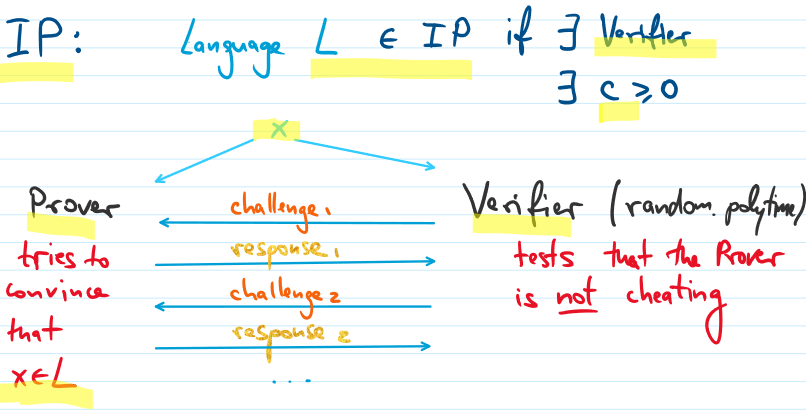 IP: Language L ∈ IP if ∃ Verifier
∃ c ≥ 0
x
Prover
tries to
convince
that
x∈L
challenge₁
response₁
challenge₂
response₂
...
Verifier (random. polytime)
tests that the Prover
is not cheating